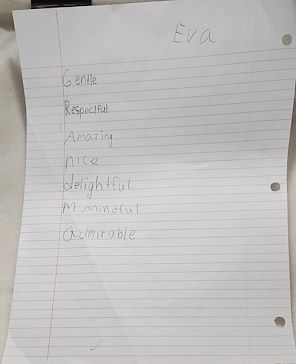 Eva
Gentle
Respectful
Amazing
nice
delightful
M mindful
admirable